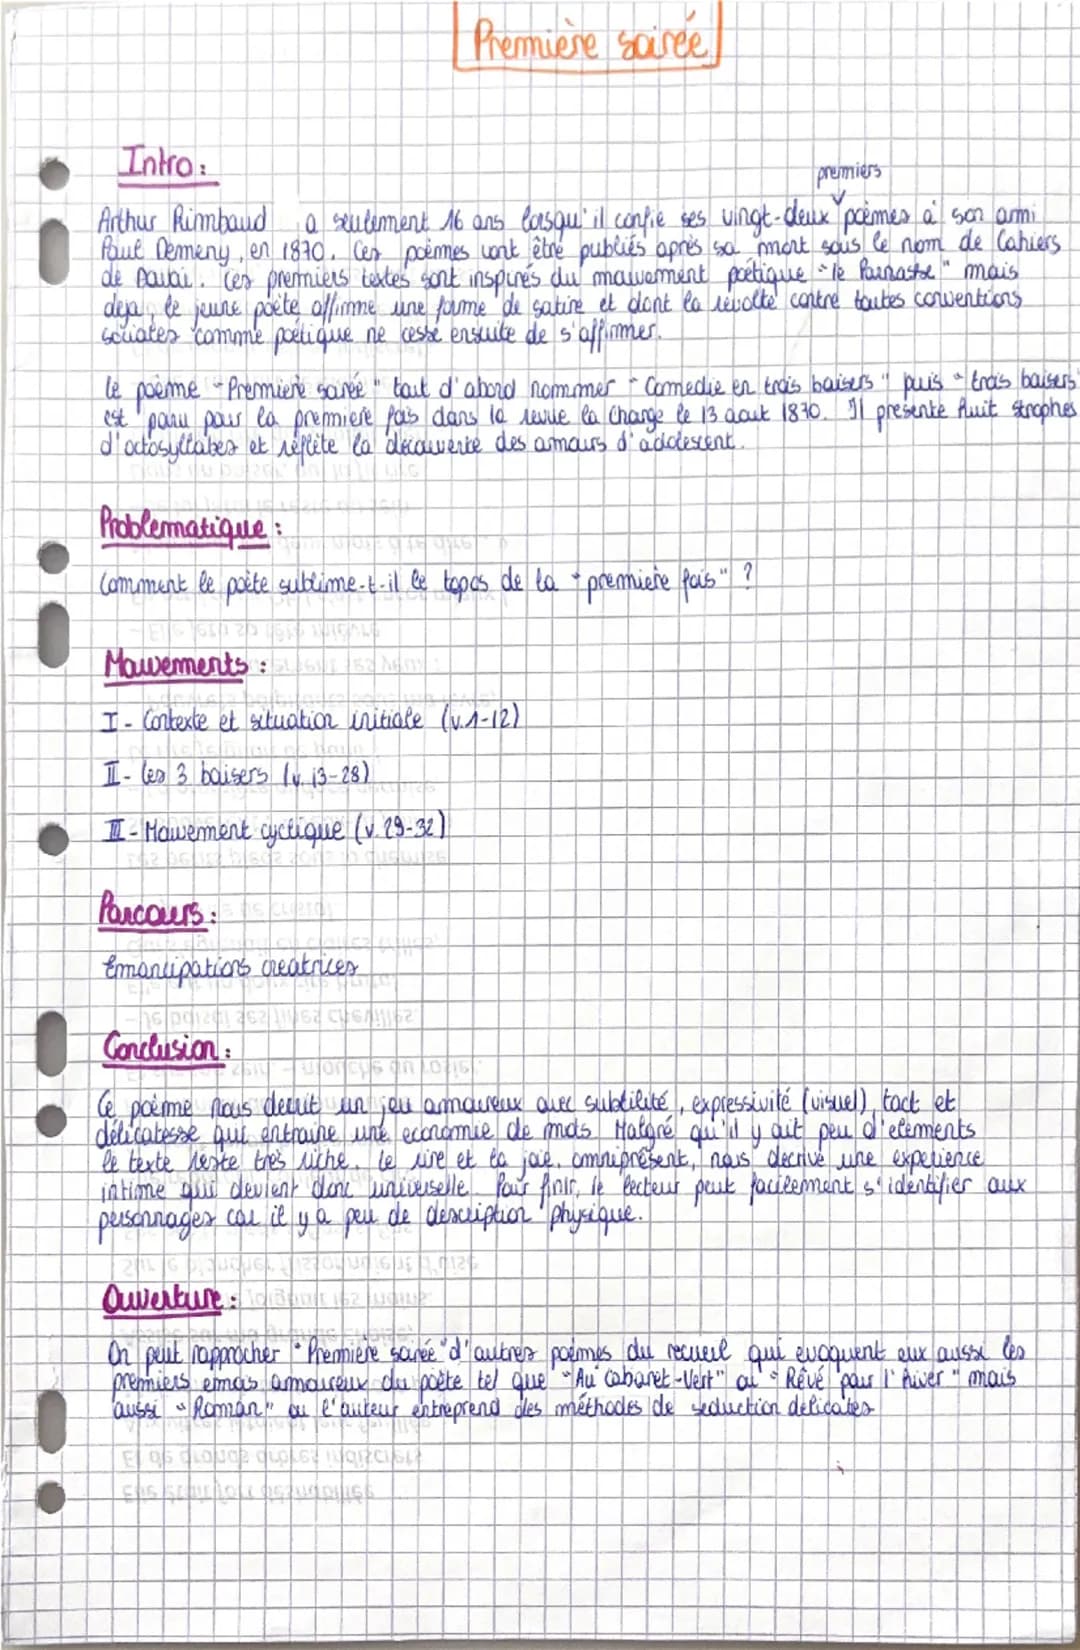 Première soirée
Intro :
premiers
Arthur Rimbaud a seulement 16 ans lorsqu'il confie ses vingt-deux poèmes à son ami
Paul Demeny, en 1870. Ces poèmes vont être publiés après sa mort sous le nom de Cahiers
de Douai. Ces premiers textes sont inspirés du mouvement poétique "le Parnasse" mais
deja, le jeune poète affirme une forme de satire et dont la révolte contre toutes conventions
sociales comme poétique ne cesse ensuite de s'affirmer.
Le poème "Première soirée" tout d'abord nommer "Comedie en trois baisers" puis "trois baisers"
est paru pour la premiere fois dans la revue la Charge le 13 aout 1870. Il présente huit strophes
d'octosyllabes et reflète la découverte des amours d'adolescent.
Problematique :
Comment le poète sublime-t-il le topos de la "premiere fois" ?
Mouvements :
I - Contexte et situation initiale (v.1-12)
II - les 3 baisers (v.13-28)
III - Mouvement cyclique (v.29-32)
Parcours :
Emancipations creatrices
Conclusion :
Ce poème nous decrit un jeu amoureux avec subtilité, expressivité (visuel), tact et
délicatesse qui entraine une economie de mots. Malgré qu'il y ait peu d'elements
le texte reste très riche. Le rire et la joie, omniprésent, nous decrive une experience
intime qui devient donc universelle. Pour finir, le lecteur peut facilement s'identifier aux
personnages car il y a peu de description physique.
Ouverture :
On peut rapprocher "Première soirée" d'autres poèmes du recueil qui evoquent eux aussi les
premiers emois amoureux du poète tel que "Au Cabaret-Vert" ou "Rêvé pour l'hiver" mais
aussi "Roman" ou l'auteur entreprend des méthodes de seduction délicates